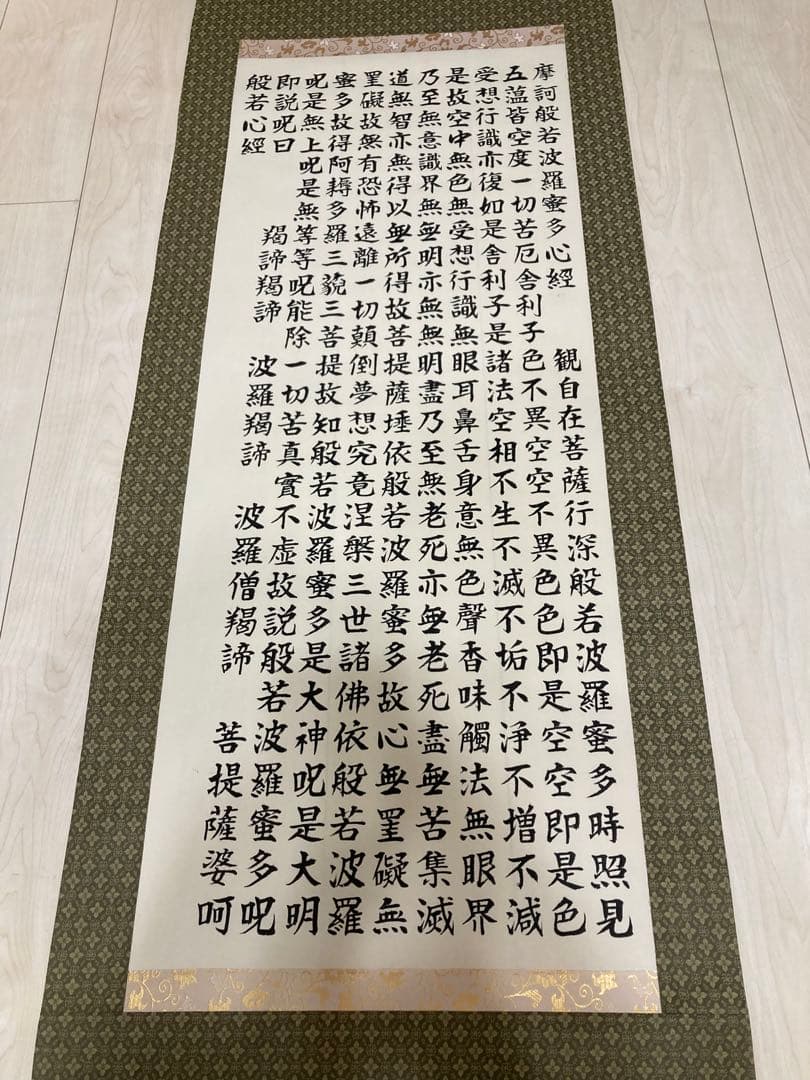 摩訶般若波羅蜜多心經　観自在菩薩行深般若波羅蜜多時照見
五蘊皆空度一切苦厄舎利子色不異空空不異色色即是空空即是色
受想行識亦復如是舎利子是諸法空相不生不滅不垢不淨不増不減
是故空中無色無受想行識無眼耳鼻舌身意無色聲香味觸法無眼界
乃至無意識界無無明亦無無明盡乃至無老死亦無老死盡無苦集滅
道無智亦無得以無所得故菩提薩埵依般若波羅蜜多故心無罣礙無
罣礙故無有恐怖遠離一切顛倒夢想究竟涅槃三世諸佛依般若波羅
蜜多故得阿耨多羅三藐三菩提故知般若波羅蜜多是大神呪是大明
呪是無上呪是無等等呪能除一切苦真實不虚故説般若波羅蜜多呪
即説呪曰　羯諦羯諦　波羅羯諦　波羅僧羯諦　菩提薩婆呵
般若心經